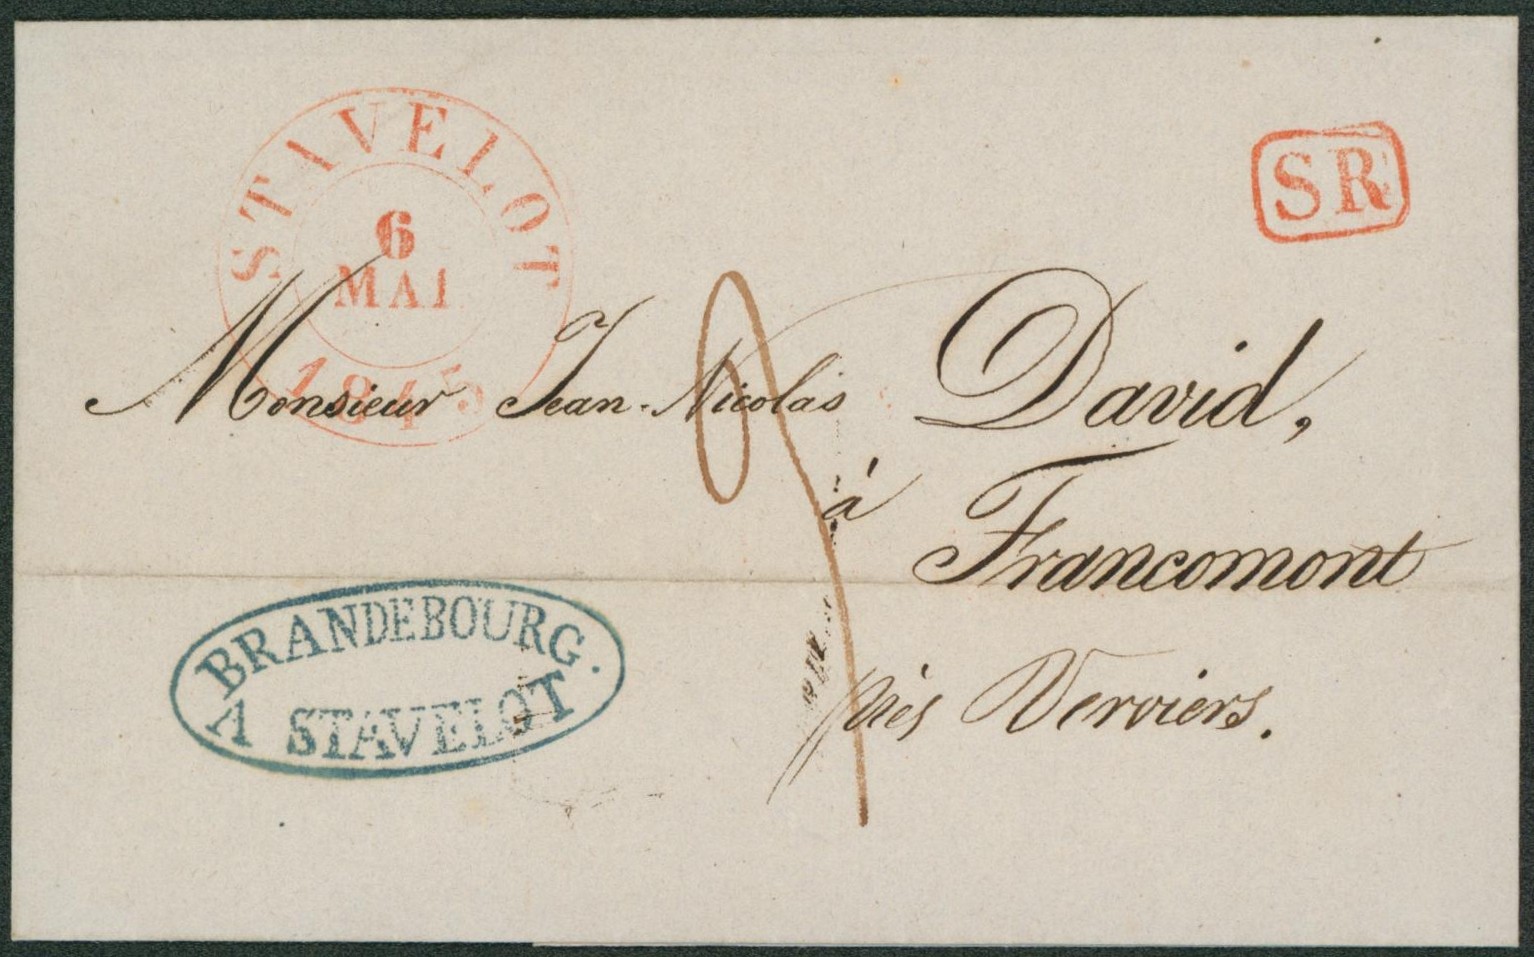 STAVELOT
6
MAI
1845
SR
Monsieur Jean-Nicolas David,
à
Francomont
près Verviers.
BRANDEBOURG.
A STAVELOT